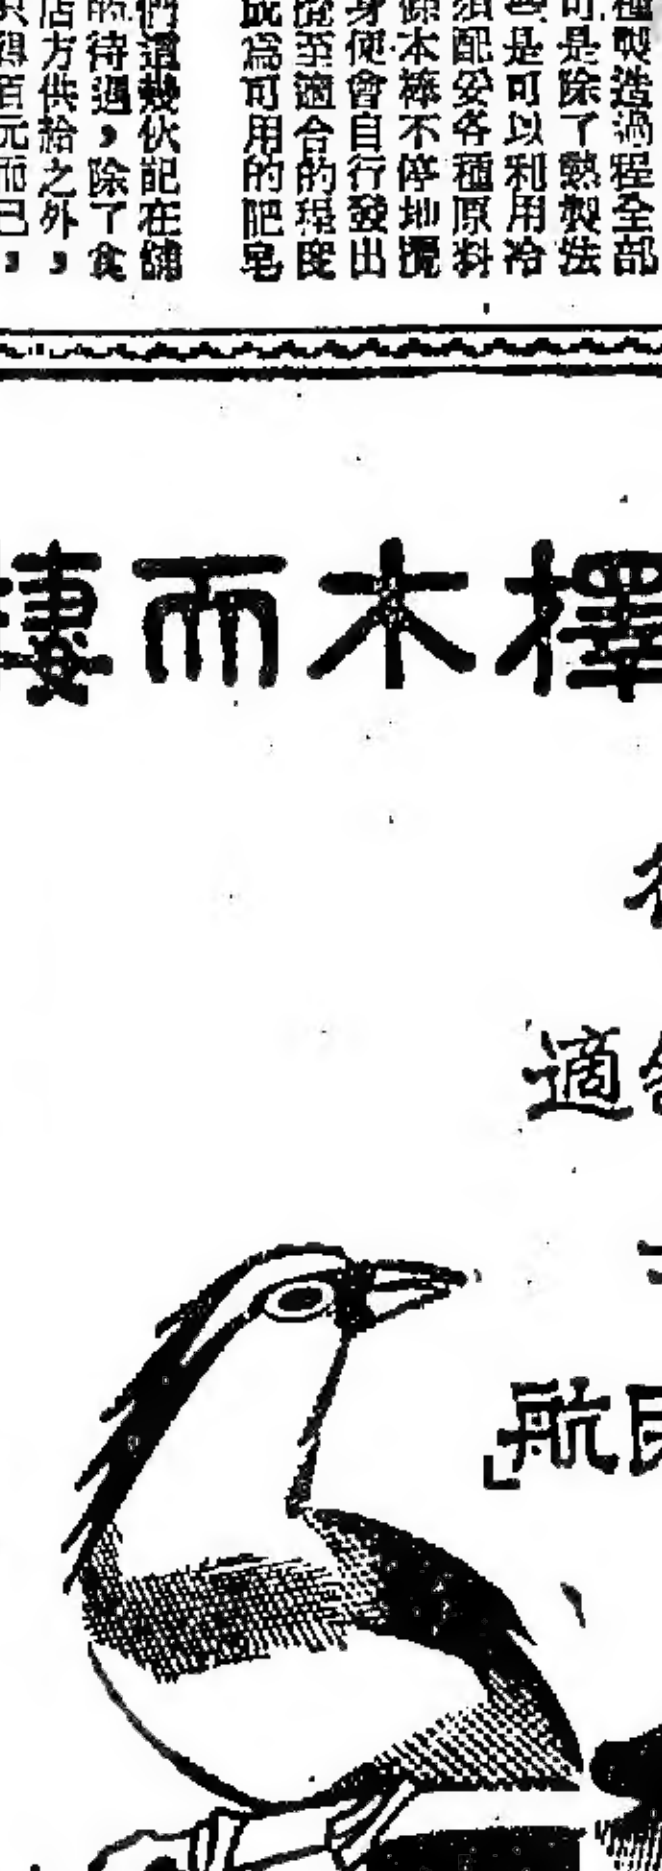 種製造過程全部
可是除了熱製法
是可以利用冷
須配妥各種原料
條木棒不停地攪
身便會自行發出
至適合的程度
成為可用的肥皂
們這幾伙記在舖
的待遇，除了食
店方供給之外，
只得百元而已，
擇木而棲
適合
民航」